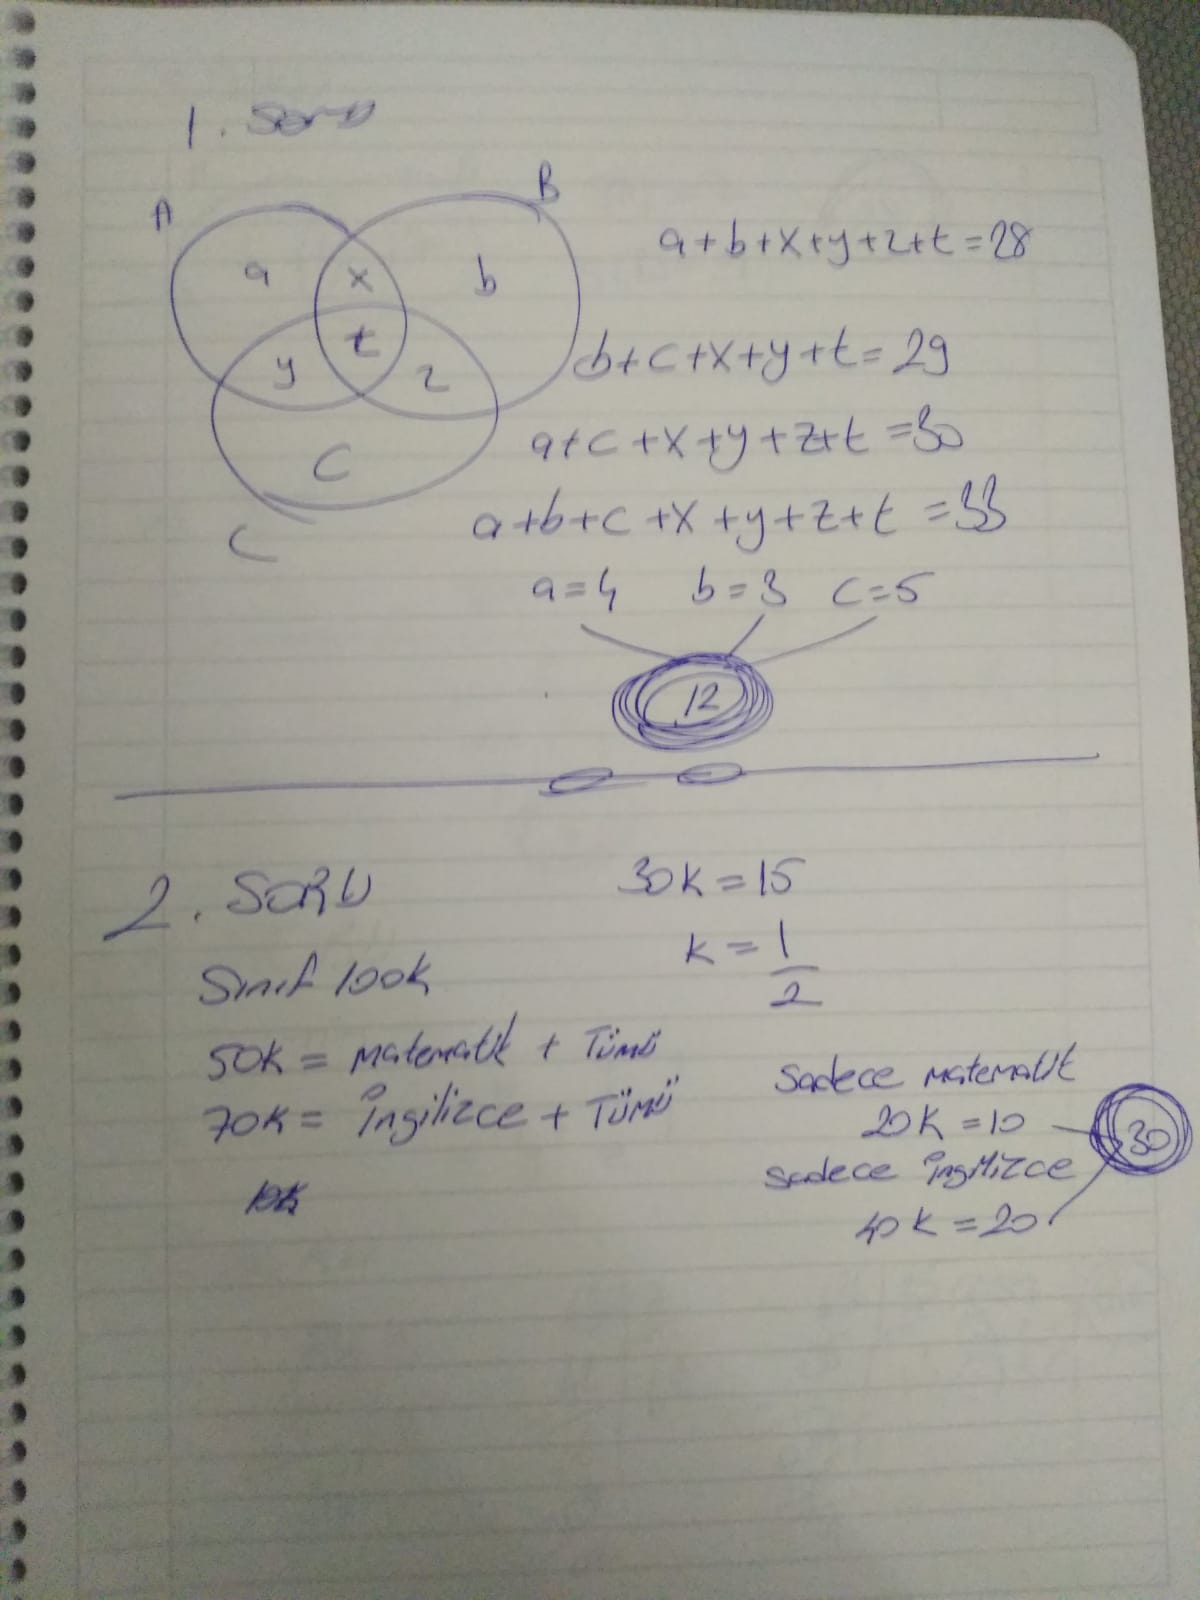 1. Soru
A
B
a
x
b
t
y
z
C
C
a+b+x+y+z+t=28
b+c+x+y+t=29
a+c+x+y+z+t=30
a+b+c+x+y+z+t=33
a=4 b=3 c=5
12
2. SORU
Sınıf 100k
50K = matematik + Tümü
70K = İngilizce + Tümü
30K=15
K=1/2
Sadece matematik
20K=10
Sadece İngilizce
40K=20
30